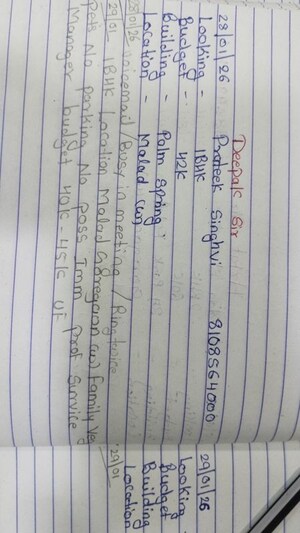 Deepak Sir
28/01/26 Prateek Singhvi 8108564000
Looking - 1BHK
Budget - 42K
Building - Palm Spring
Location - Malad (w)
28/01/26 voicemail / Busy in meeting / Ringtone
29/01 1BHK Location Malad Goregaon (w) Family Veg
Pets No Parking No Poss Imm Prof Service
Manager budget 40K - 45K UF
29/01/26
Looking
Budget
Building
Location
29/01